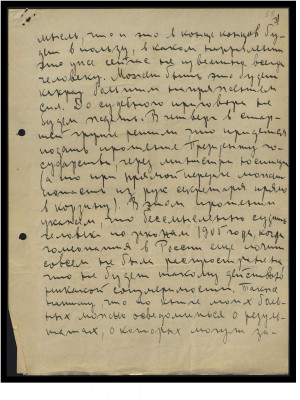 мысль, что и это в конце концов бу-
дет в пользу, в каком направлении
это уж сейчас не известно всегда
человеку. Может быть это будет
каким большим напряжением
сил. До судебного приговора не
будем ждать. В четверг в стар-
шей группе решили что придется
подать прошение Президенту го-
сударства, через министра юстиции
(а то при прямой передаче может
попасть из рук секретаря прямо
в корзину). В этом прошении
укажем, что бессмысленно судить
человека по законам 1905 года, когда
гомеопатия в России еще почти
совсем не была распространена
что не будет никакому действию
никакой соизмеримости. Также
напишу, что по книге моих боль-
ных можно осведомиться о резуль-
татах, о которых могут за-